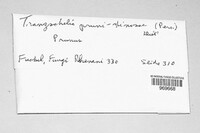 Tranzschelia pruni-spinosae (Pers.)
Diet.
Prunus
Fuckel, Fungi Rhenani 330
969668